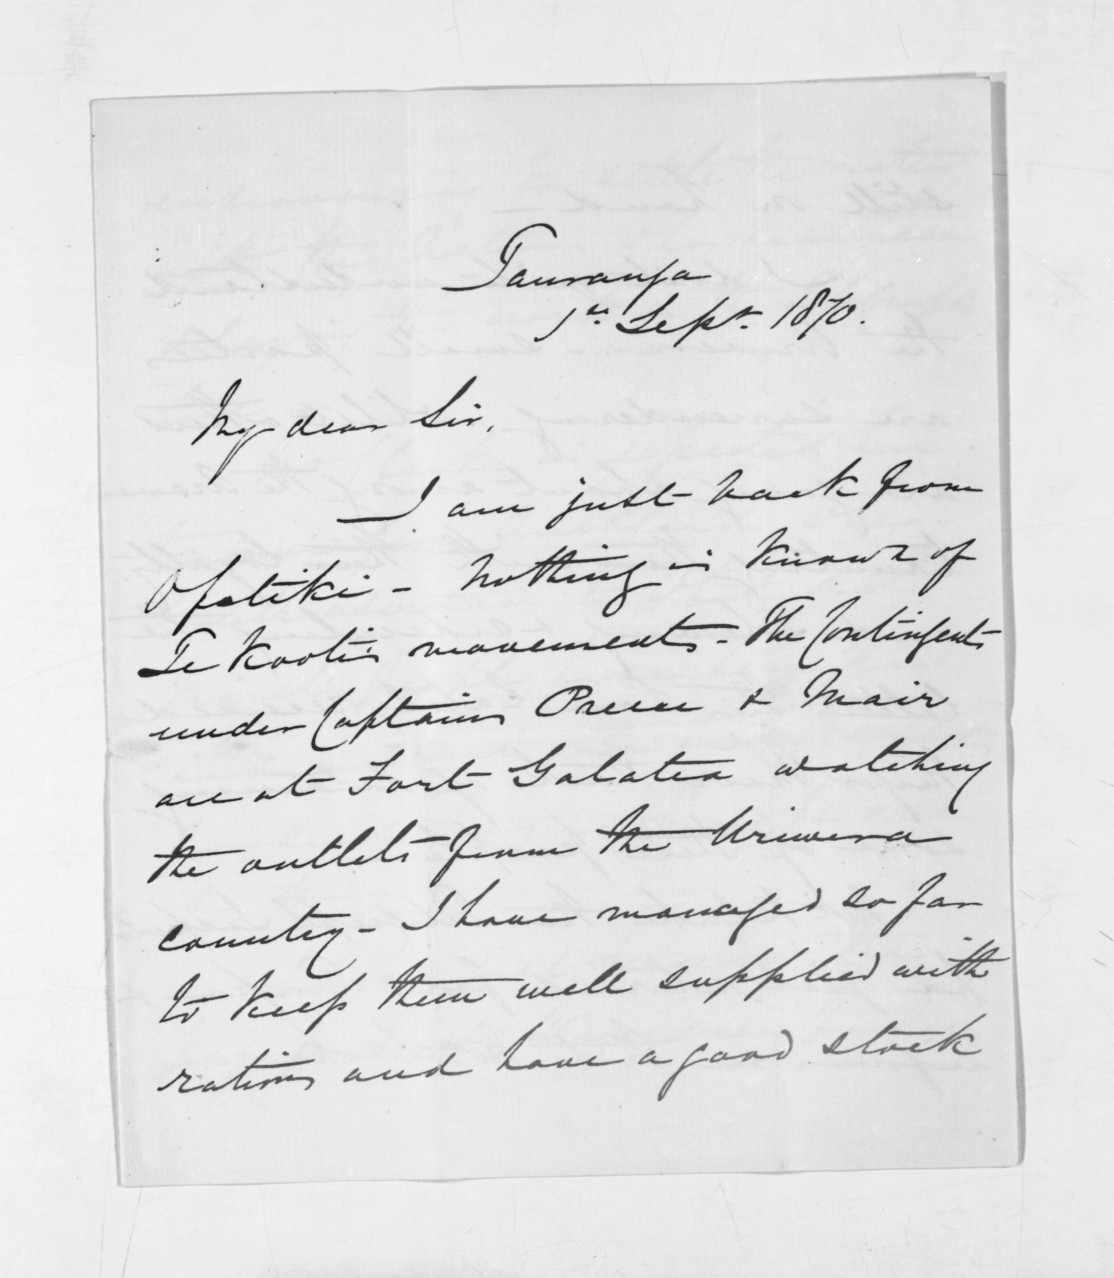 Tauranga
1st Sept. 1870.
My dear Sir,
I am just back from
Opotiki - Nothing is known of
Te Kooti's movements - The Contingents
under Captains Preece & Mair
are at Fort Galatea watching
the outlets from the Uriwera
country - I have managed so far
to keep them well supplied with
rations and have a good stock